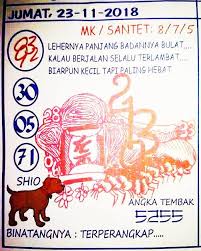 JUMAT, 23-11-2018
MK / SANTET: 8/7/5
LEHERNYA PANJANG BADANNYA BULAT.....
KALAU BERJALAN SELALU TERLAMBAT....
BIARPUN KECIL TAPI PALING HEBAT
30
05
71
SHIO
ANGKA TEMBAK
5255
BINATANGNYA : TERPERANGKAP.....